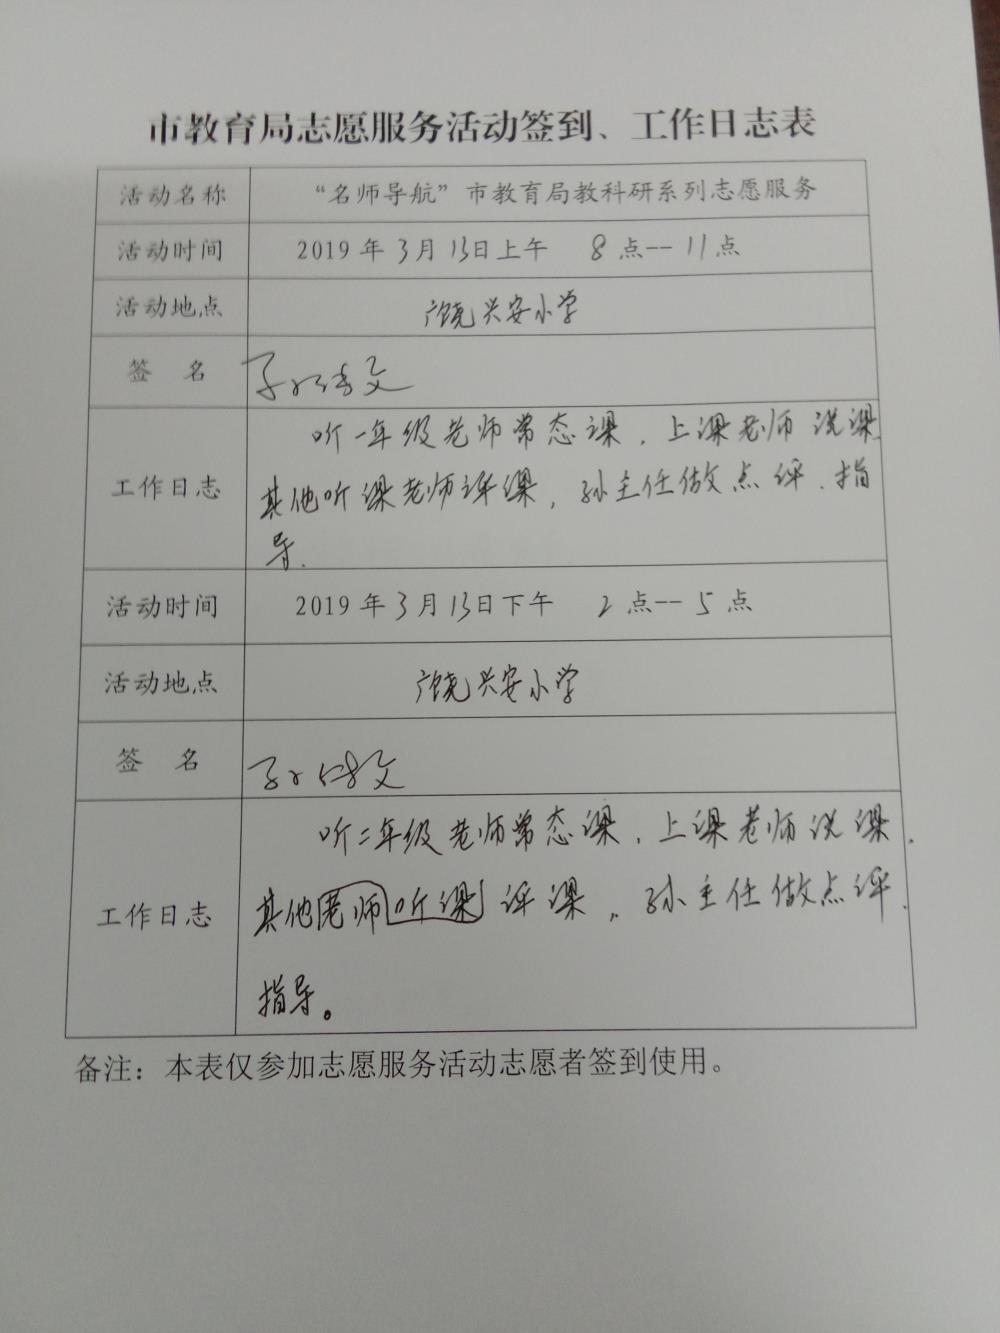 市教育局志愿服务活动签到、工作日志表
活动名称 “名师导航”市教育局教科研系列志愿服务
活动时间 2019年3月13日上午 8点--11点
活动地点 广饶兴安小学
签 名
工作日志 听一年级老师常态课，上课老师说课
其他听课老师评课，孙主任做点评、指
导.
活动时间 2019年3月13日下午 2点--5点
活动地点 广饶兴安小学
签 名
工作日志 听二年级老师常态课，上课老师说课，
其他老师听课评课，孙主任做点评、
指导。
备注：本表仅参加志愿服务活动志愿者签到使用。